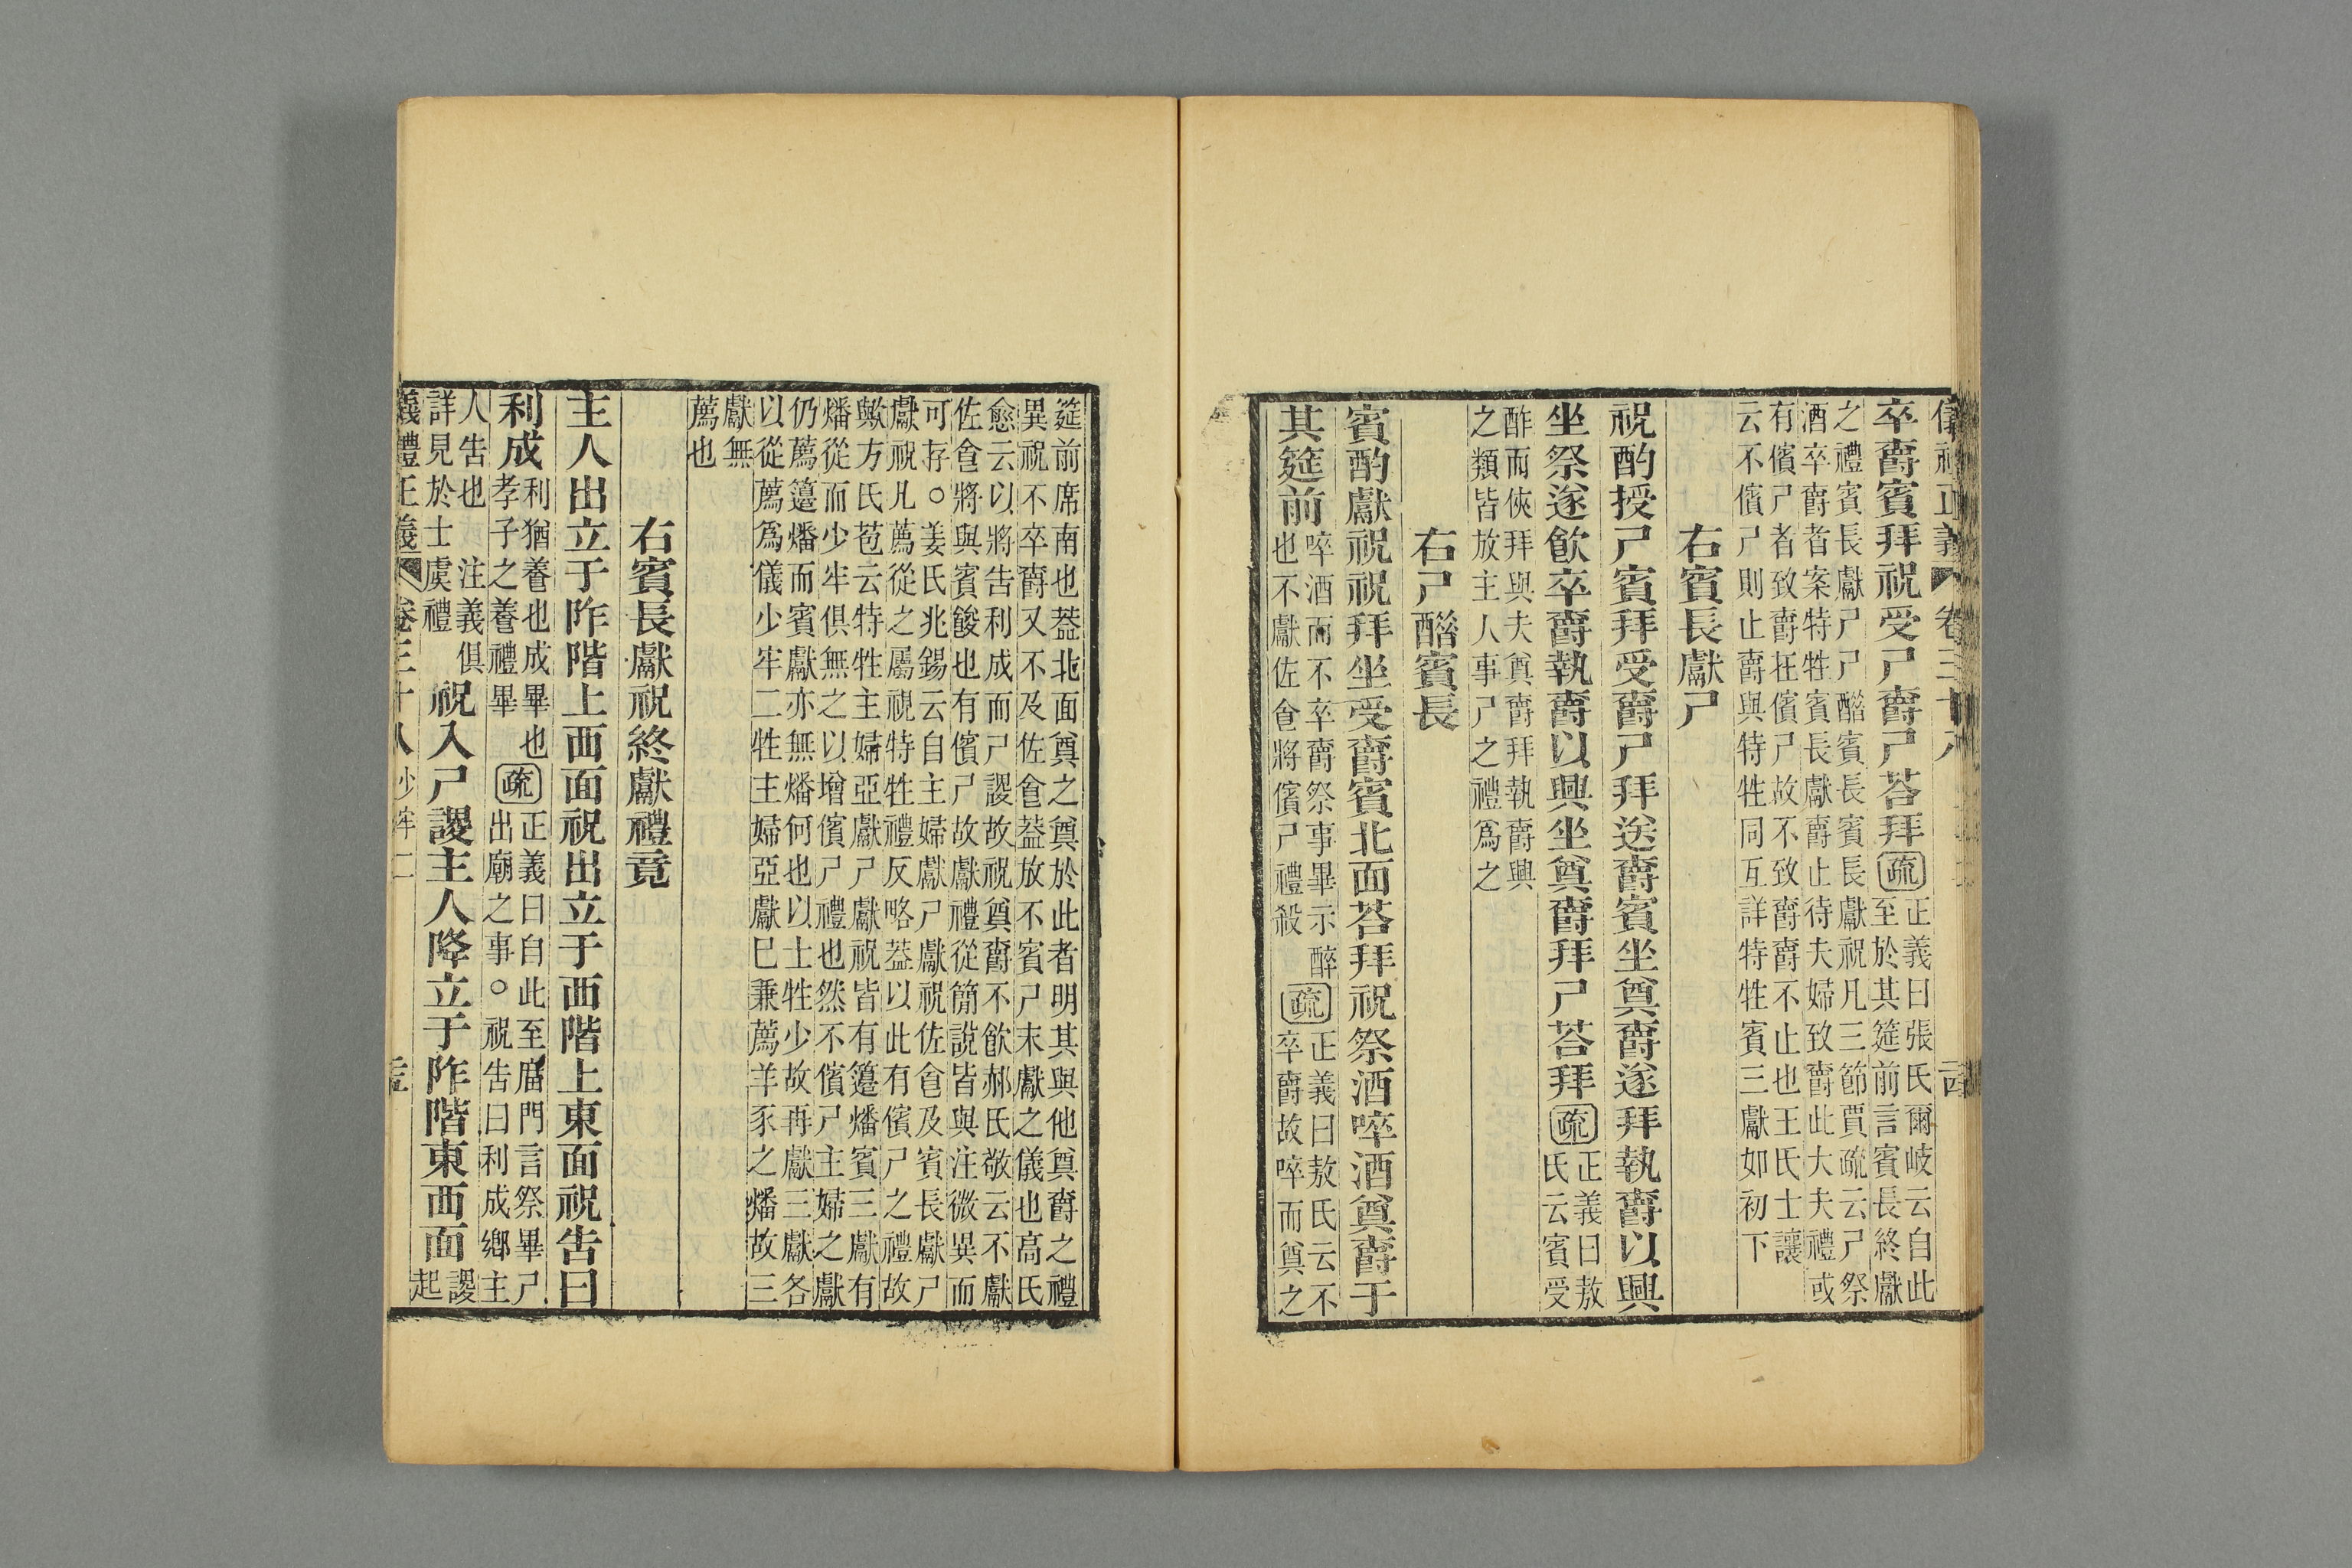 儀禮正義 卷三十八
卒𣝣賓拜祝受尸𣝣尸荅拜 疏 正義曰張氏爾岐云自此
至於其筵前言賓長終獻
之禮賓長獻尸尸醋賓長賓長獻祝凡三節賈疏云尸祭
酒卒𣝣者案特牲賓長獻𣝣止待夫婦致𣝣此大夫禮或
有儐尸者致𣝣在儐尸故不致𣝣𣝣不止也王氏士讓
云不儐尸則止𣝣與特牲同互詳特牲賓三獻如初下
右賓長獻尸
祝酌授尸賓拜受𣝣尸拜送𣝣賓坐奠𣝣遂拜執𣝣以興
坐祭遂飲卒𣝣執𣝣以興坐奠𣝣拜尸荅拜 疏 正義曰敖
氏云賓受
酢而俠拜與夫奠𣝣拜執𣝣興
之類皆放主人事尸之禮為之
右尸醋賓長
賓酌獻祝祝拜坐受𣝣賓北面荅拜祝祭酒啐酒奠𣝣于
其筵前 啐酒而不卒𣝣祭事畢示醉
也不獻佐食將儐尸禮殺 疏 正義曰敖氏云不
卒𣝣故啐而奠之
筵前席南也葢北面奠之奠於此者明其與他奠𣝣之禮
異祝不卒𣝣又不及佐食葢放不賓尸末獻之儀也高氏
愈云以將告利成而尸謖故祝奠𣝣不飲郝氏敬云不獻
佐食將與賓餕也有儐尸故獻禮從簡說皆與注微異而
可存○姜氏兆錫云自主婦獻尸獻祝佐食及賓長獻尸
獻祝凡薦從之屬視特牲禮反略葢以此有儐尸之禮故
歟方氏苞云特牲主婦亞獻尸獻祝皆有籩燔賓三獻有
燔從而少牢俱無之以增儐尸禮也然不儐尸主婦之獻
仍薦籩燔而賓獻亦無燔何也以士牲少故再獻三獻各
以從薦為儀少牢二牲主婦亞獻巳兼薦羊豕之燔故三
獻無
薦也
右賓長獻祝終獻禮竟
主人出立于阼階上西面祝出立于西階上東面祝告曰
利成 利猶養也成畢也
孝子之養禮畢 疏 正義曰自此至廟門言祭畢尸
出廟之事○祝告曰利成鄉主
人告也 注義俱
詳見於士虞禮 祝入尸謖主人降立于阼階東西面 謖
起
義禮正義 卷三十八 少牢二